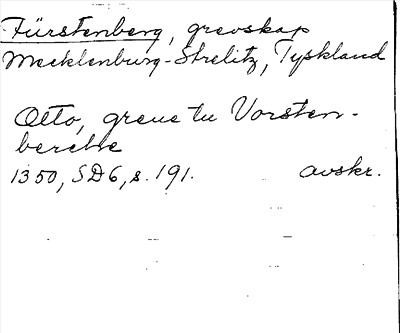 Fürstenberg, grevskap
Mecklenburg-Strelitz, Tyskland
Otto, greue tu Vorsten-
berehe
1350, SD6, s. 191. avskr.